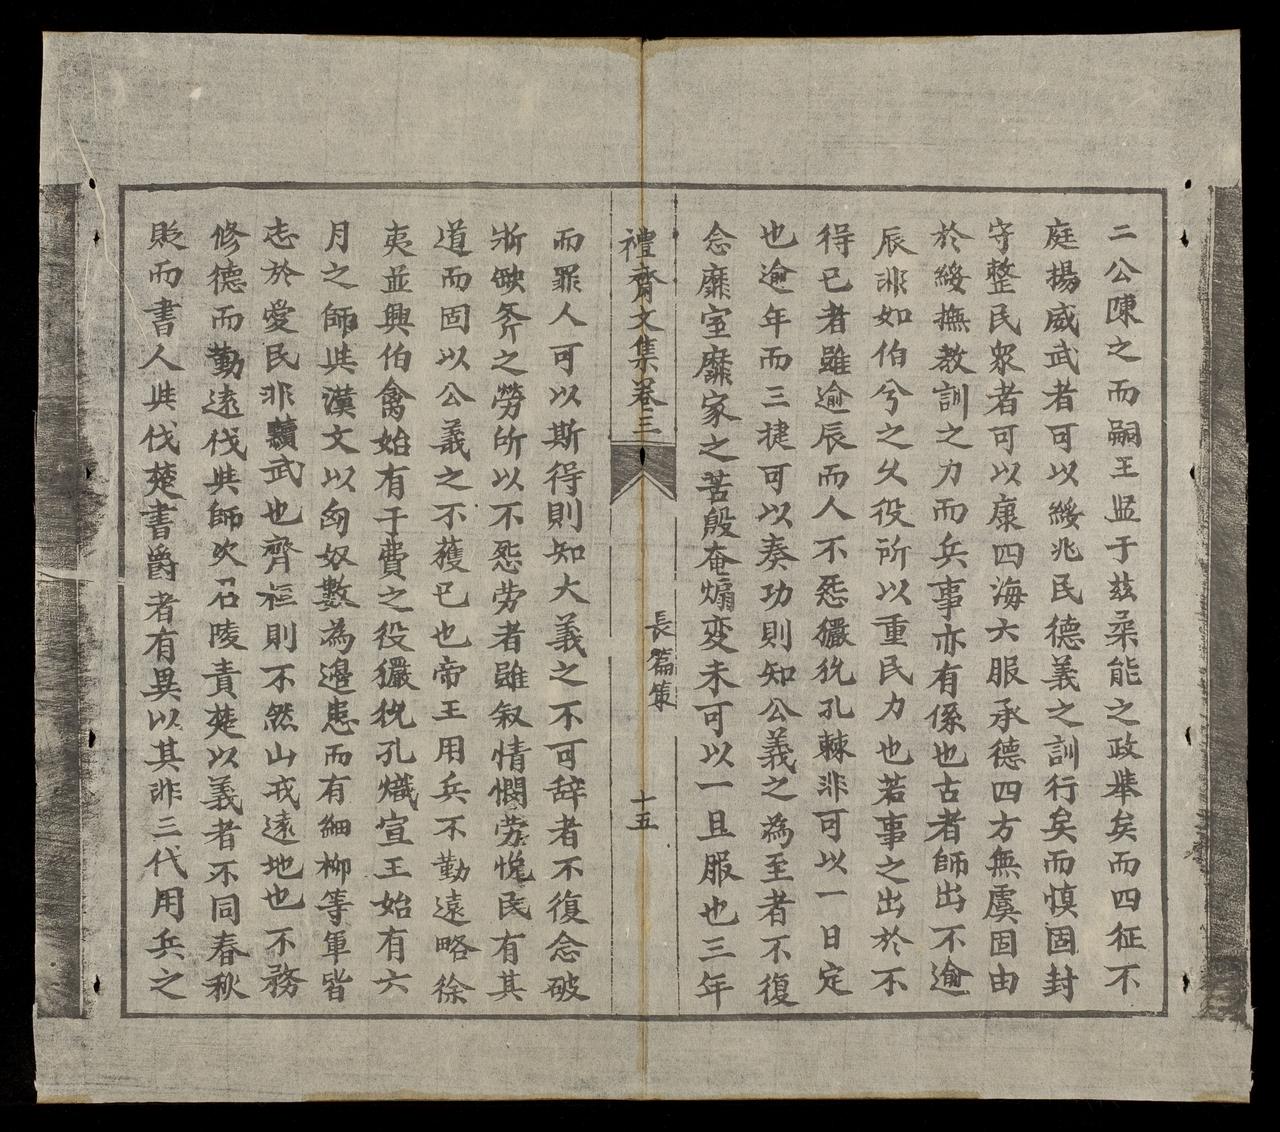 二公陳之而嗣王监于玆柔能之政举矣而四征不
庭揚威武者可以綏兆民德義之訓行矣而慎固封
守整民衆者可以康四海六服承德四方無虞固由
於綏撫教訓之力而兵事亦有係也古者師出不逾
辰非如伯兮之久役所以重民力也若事之出於不
得已者雖逾辰而人不怨玁狁孔棘非可以一日定
也逾年而三捷可以奏功則知公義之為至者不復
念靡室靡家之苦殷奄煽变未可以一旦服也三年
禮齋文集卷三
長篇策
十五
而罪人可以斯得則知大義之不可辞者不復念破
斨缺斧之勞所以不怨劳者雖叙情憫劳悅民有其
道而固以公義之不獲已也帝王用兵不勤遠略徐
夷並興伯禽始有于費之役玁狁孔熾宣王始有六
月之師與漢文以匈奴數為邊患而有細柳等軍皆
志於愛民非黷武也齊桓則不然山戎遠地也不務
修德而勤遠伐與師次召陵責楚以義者不同春秋
貶而書人與伐楚書爵者有異以其非三代用兵之